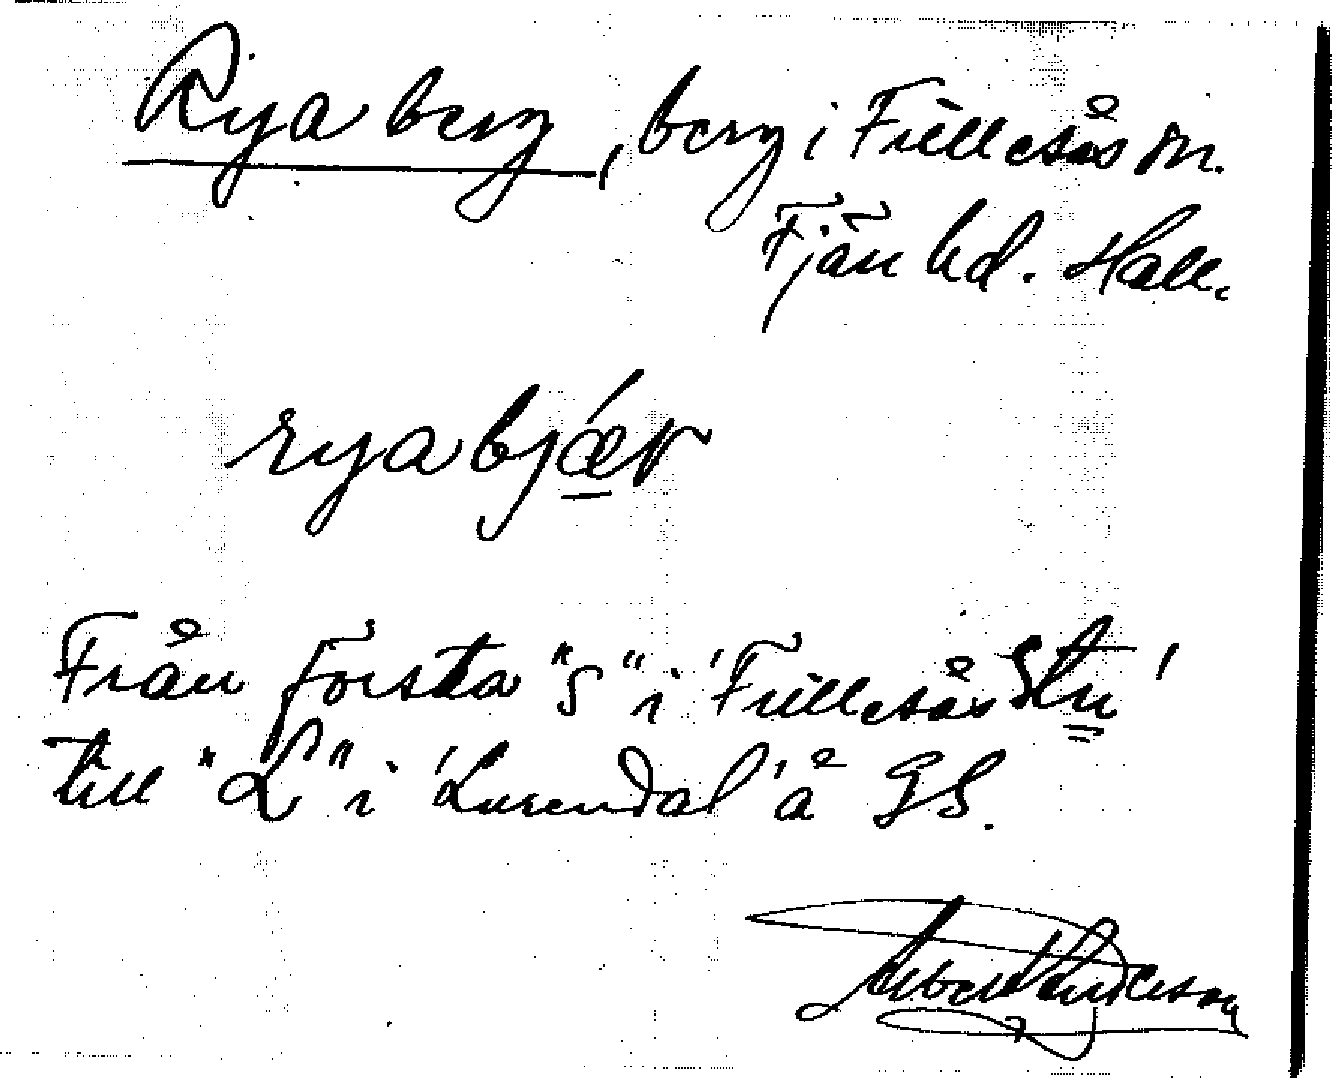 Ryaberg, berg i Fillesås sn.
Fjäre hd. Hall.
ryabjær
Från första "s" i 'Fillesås Stn'
till "L" i 'Lurendal' å GS.
Albert Anderson